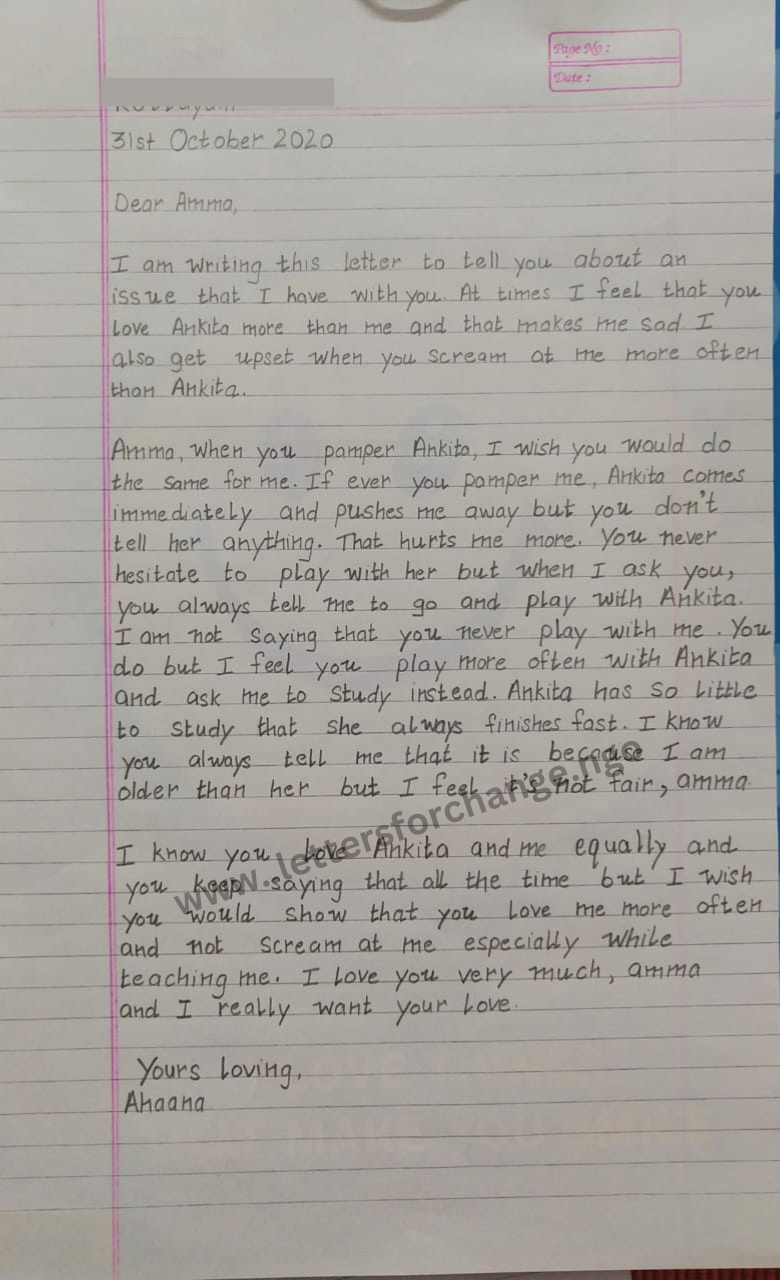 Page No :
Date :
31st October 2020
Dear Amma,
I am writing this letter to tell you about an
issue that I have with you. At times I feel that you
love Ankita more than me and that makes me sad I
also get upset when you scream at me more often
than Ankita.
Amma, when you pamper Ankita, I wish you would do
the same for me. If ever you pamper me, Ankita comes
immediately and pushes me away but you don't
tell her anything. That hurts me more. You never
hesitate to play with her but when I ask you,
you always tell me to go and play with Ankita.
I am not saying that you never play with me. You
do but I feel you play more often with Ankita
and ask me to study instead. Ankita has so little
to study that she always finishes fast. I know
you always tell me that it is because I am
older than her but I feel it's not fair, amma
I know you love Ankita and me equally and
you keep saying that all the time but I wish
you would show that you love me more often
and not scream at me especially while
teaching me. I love you very much, amma
and I really want your love.
Yours loving,
Ahaana
www.lettersforchange.ngo